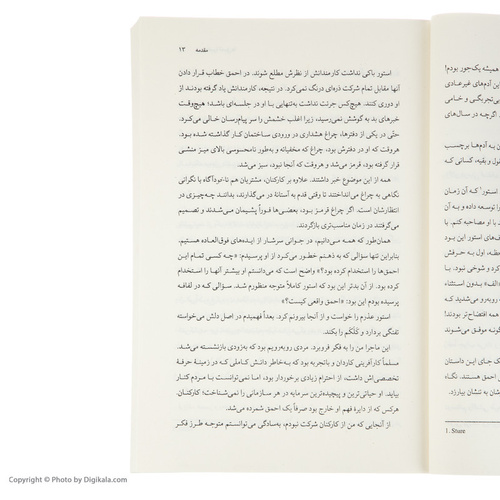 مقدمه ۱۳
استور باکی نداشت کارمندانش از نظرش مطلع شوند. در احمق خطاب قرار دادن
آنها مقابل تمام شرکت ذره‌ای درنگ نمی‌کرد. در نتیجه، کارمندانش یاد گرفته بودند از
او دوری کنند. هیچ‌کس جرئت نداشت به‌تنهایی با او در جلسه‌ای باشد؛ هیچ‌وقت
خبرهای بد به گوشش نمی‌رسید، زیرا اغلب خشمش را سر پیام‌رسان خالی می‌کرد.
حتی در یکی از دفترها، چراغ هشداری در ورودی ساختمان کار گذاشته شده بود.
هروقت که او در دفترش بود، چراغ که مخفیانه و به‌طور نامحسوسی بالای میز منشی
قرار گرفته بود، قرمز می‌شد و هروقت که آنجا نبود، سبز می‌شد.
همه از این موضوع خبر داشتند. علاوه بر کارکنان، مشتریان هم ناخودآگاه با نگرانی
نگاهی به چراغ می‌انداختند تا وقتی قدم به آستانهٔ در می‌گذارند، بدانند چه‌چیزی در
انتظارشان است. اگر چراغ قرمز بود، بعضی‌ها فوراً پشیمان می‌شدند و تصمیم
می‌گرفتند در زمان مناسب‌تری بازگردند.
همان‌طور که همه می‌دانیم، در جوانی سرشار از ایده‌های فوق‌العاده هستیم.
بنابراین تنها سؤالی که به ذهنم خطور می‌کرد از او پرسیدم: «چه کسی تمام این
احمق‌ها را استخدام کرده بود؟» واضح است که می‌دانستم او بیشتر آنها را استخدام
کرده بود. از آن بدتر این بود که استور کاملاً متوجه منظورم شد. سؤالی که در لفافه
پرسیده بودم این بود: «احمق واقعی کیست؟»
استور عذرم را خواست و از آنجا بیرونم کرد. بعداً فهمیدم در اصل دلش می‌خواسته
تفنگی بردارد و کَلَکم را بکند.
این ماجرا من را به فکر فروبرد. مردی روبه‌رویم بود که به‌زودی بازنشسته می‌شد.
مسلماً کارآفرینی کاردان و باتجربه بود که به‌خاطر دانش کاملی که در زمینهٔ حرفهٔ
تخصصی‌اش داشت، از احترام زیادی برخوردار بود، اما نمی‌توانست با مردم کنار
بیاید. او حیاتی‌ترین و پیچیده‌ترین سرمایه در هر سازمانی را نمی‌شناخت؛ کارکنان.
هرکس که از دایرهٔ فهم او خارج بود صرفاً یک احمق شمرده می‌شد.
از آنجایی که من از کارکنان شرکت نبودم، به‌سادگی می‌توانستم متوجه طرز فکر
همیشه یک‌جور بودم!
این آدم‌های غیرعادی
بی‌تجربگی و خامی
اگرچه در سال‌های
ن به آدم‌ها برچسب
فول و بقیه، کسانی که
استور¹ که آن زمان
را توسعه داده و به آن
با او مصاحبه کنم. با
ف‌های استور این بود
حظه، اول به حرفش
کرد و شوخی نبود. با
«الف» بدون استثناء
روبه‌رو می‌شدید که
همه افتضاح‌تر بودند!
گونه موفق می‌شوند
ک جای این داستان
ی احمق هستند. نگاه
ن به تنشان بیارزد.
1. Sture
Copyright © Photo by Digikala.com